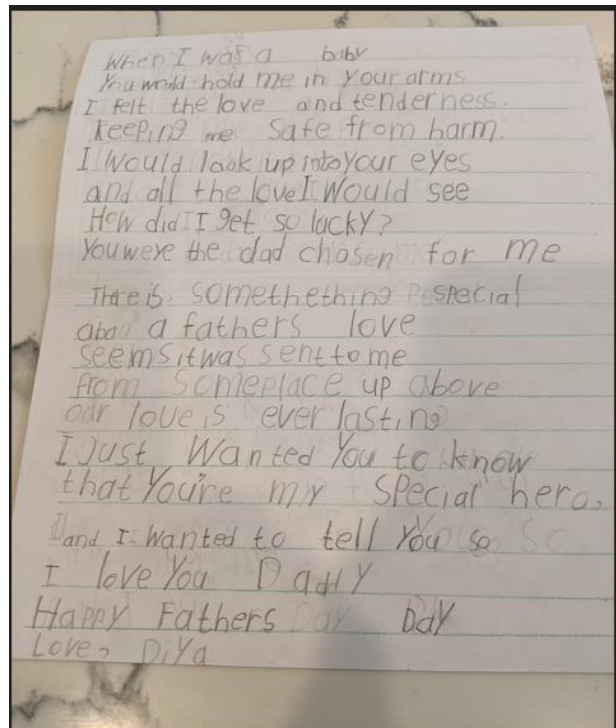 When I was a baby
You would hold me in your arms
I felt the love and tenderness.
keeping me safe from harm.
I would look up into your eyes
and all the love I would see
How did I get so lucky?
You were the dad chosen for me
There is somethething special
abou a fathers love
seems it was sent to me
from someplace up above
our love is ever lasting
I just wanted you to know
that you're my special hero,
and I wanted to tell you so
I love you Daddy
Happy Fathers Day
Love, Diya